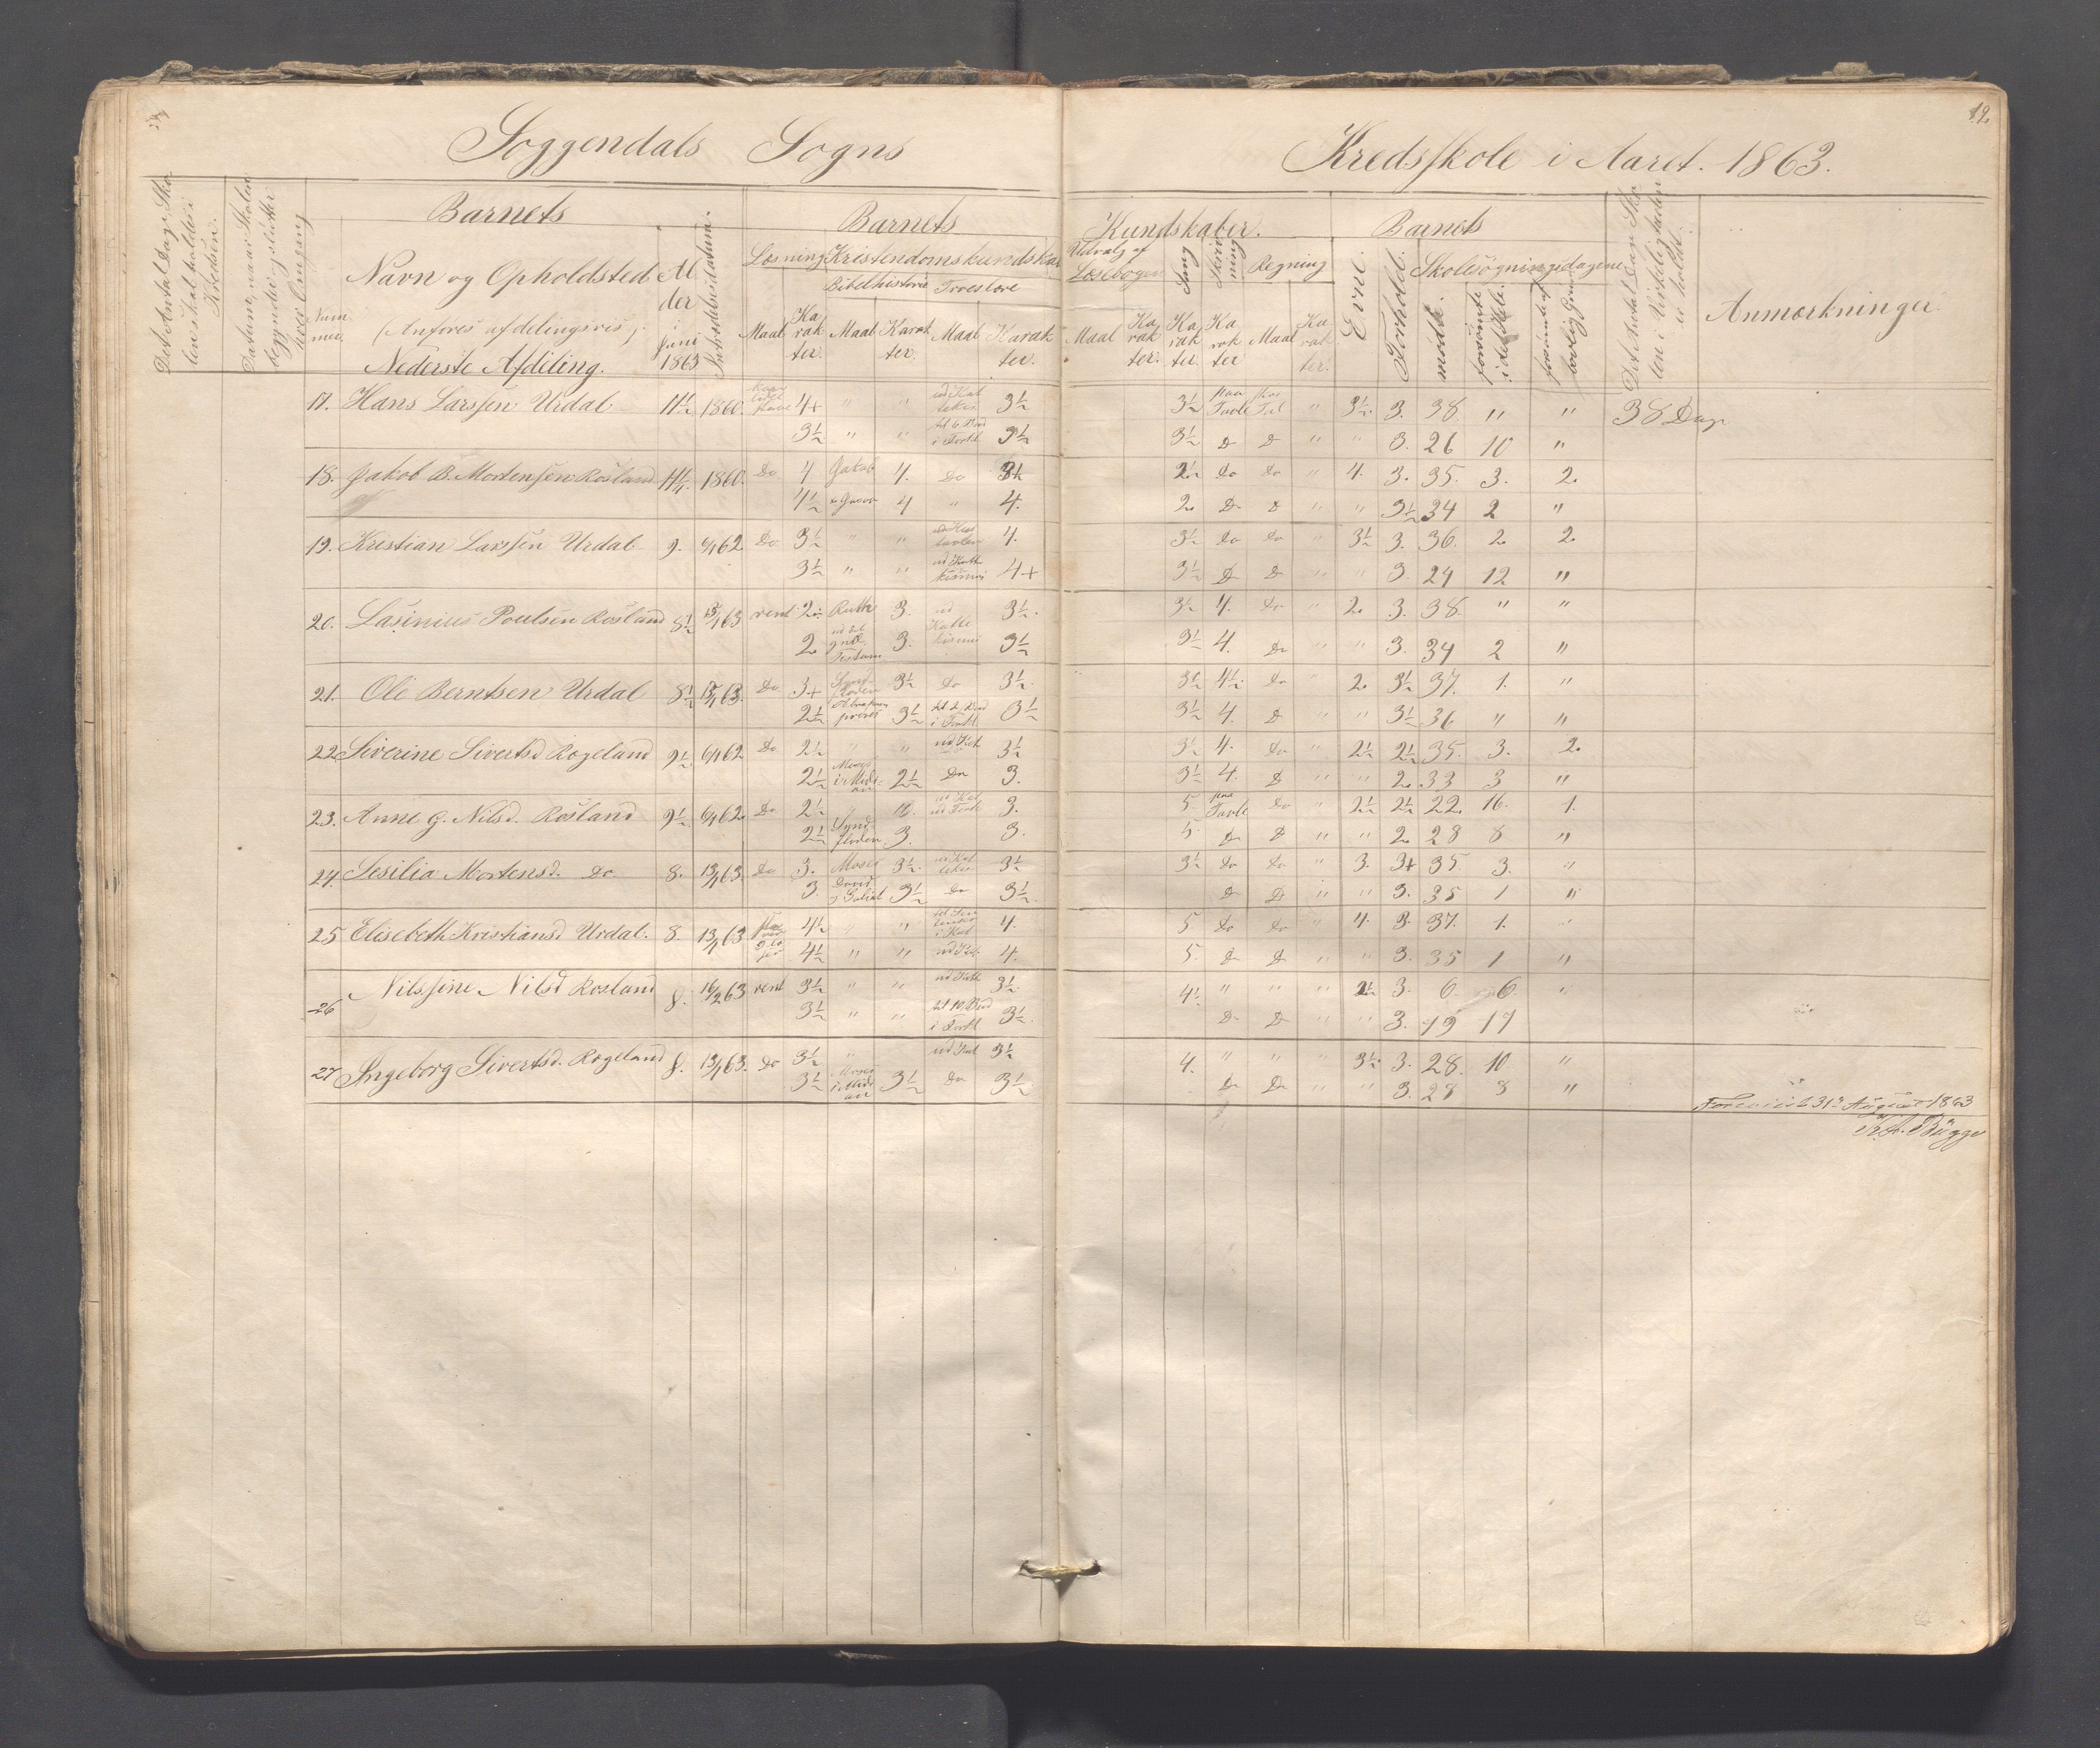 19.
Soggendals Sogns Kredsskole i Aaret. 1863.
Det Antal Dage, Skolen skal holdes i Kredsen.
Datum, naar Skolen begynder og slutter hver Omgang
Nummer.
Barnets
Navn og Opholdsted
(Anføres afdelingsvis).
Nederste Afdeling.
Alder i Juni 1863
Indtrædelsesdatum.
Barnets Kundskaber.
Læsning Kristendomskundskab
Bibelhistorie Troeslære
Maal Karakter. Maal Karakter. Maal Karakter.
Udvalg af Læsebogen Sang Skrivning Regning
Maal Karakter. Karakter. Karakter Maal Karakter.
Barnets
Evne. Forhold. Skolesøgningsdagene
mødt. forsømte i det Hele. forsømte af lovlig Grund
Det Antal Dage Skolen i Virkeligheden er holdt.
Anmærkninger.
17. Hans Larssen Urdal 11½ 1860. 4+ " " ud Kat 3½ 3½ paa Tavle Tal " 3½. 3. 38. " " 38 Dage
3½ " " til 6. Bud i Forkl 3½ 3½ Do Do " " 3. 26 10 "
18. Jakob B. Mortensen Rosland 11¼. 1860. Do 4 Jakob 4. Do 3+ 2½ Do Do " 4. 3. 35. 3. 2.
4½ 4 " 4. 2. Do Do " " 3½ 34 2 "
19. Kristian Larssen Urdal 9. 6/1 62 Do 3½ " " 4. 3½ Do Do " 3½ 3. 36. 2. 2.
3½ " " ud Katekismi 4+ 3½ Do Do " " 3. 24 12 "
20. Lasinius Poulsen Rosland 8½ 13/1 63 rent 2. Ruth 3. ud Katekismi 3½. 3½ 4. Do " 2. 3. 38. " "
2. ud det gml. Testam 3. 3½ 3½ 4. Do " " 3. 34 2 "
21. Ole Berntsen Urdal 8½ 13/1 63. Do 3+ Syndfloden 3½ Do 3½. 3½ 4½. Do " 2. 3½ 37. 1. "
2½ Abraham prøves 3½ til 2. Bud i Forkl 3½ 3½ 4. Do " " 3½ 36 " "
22 Siverine Sivertsd Rogeland 9½. 6/1 62 Do 2½ " " ud Kat 3½ 3½ 4. Do " 2½ 2½ 35. 3. 2.
2½ Moses i Midian 2½ Do 3. 3½ 4. Do " " 2. 33 3 "
23. Anne G. Nilsd. Rosland 9½. 6/1 62. Do 2½ " ud Kat ud Forkl 3. 5. paa Tavle Do " 2½ 2½ 22. 16. 1.
2½ Syndfloden 3. 3. 5. Do Do " " 2. 28 8 "
24. Sesilia Mortensd. Do 8. 13/1 63. Do 3. Moses 3½. ud Kat 3½ 3½ Do Do " 3. 3+ 35. 3. "
3. David og Goliat 3½ Do 3½. Do Do " " 3. 35 1 "
25 Elisebeth Kristiansd Urdal. 8. 13/1 63 4½ " " 4. 5 Do Do " 4. 3. 37. 1. "
4½ " " ud Kat. 4. 5. Do Do " " 3. 35 1 "
26 Nilssine Nilsd Rosland 8. 16/2 63 rent 3½ " " ud Kat 3½. 4½. " " " 2½ 3. 6. 6. "
3½ " " til 10. Bud i Forkl 3½. Do Do " " 3. 19 17
27 Ingeborg Sivertsd. Rogeland 8. 13/1 63. Do 3½ " ud Kat 3½ 4. " " " 3½. 3. 28. 10 "
3½ Moses i Midian 3½ Do 3½. Do Do " " 3. 28 8 "
31te August 1863
Bügge